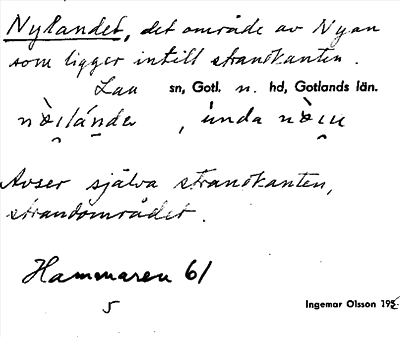 Nylandet, det område av Nyan
som ligger intill strandkanten.
Lau sn, Gotl. n. hd, Gotlands län.
Avser själva strandkanten,
strandområdet.
Hammaren 61
5
Ingemar Olsson 195